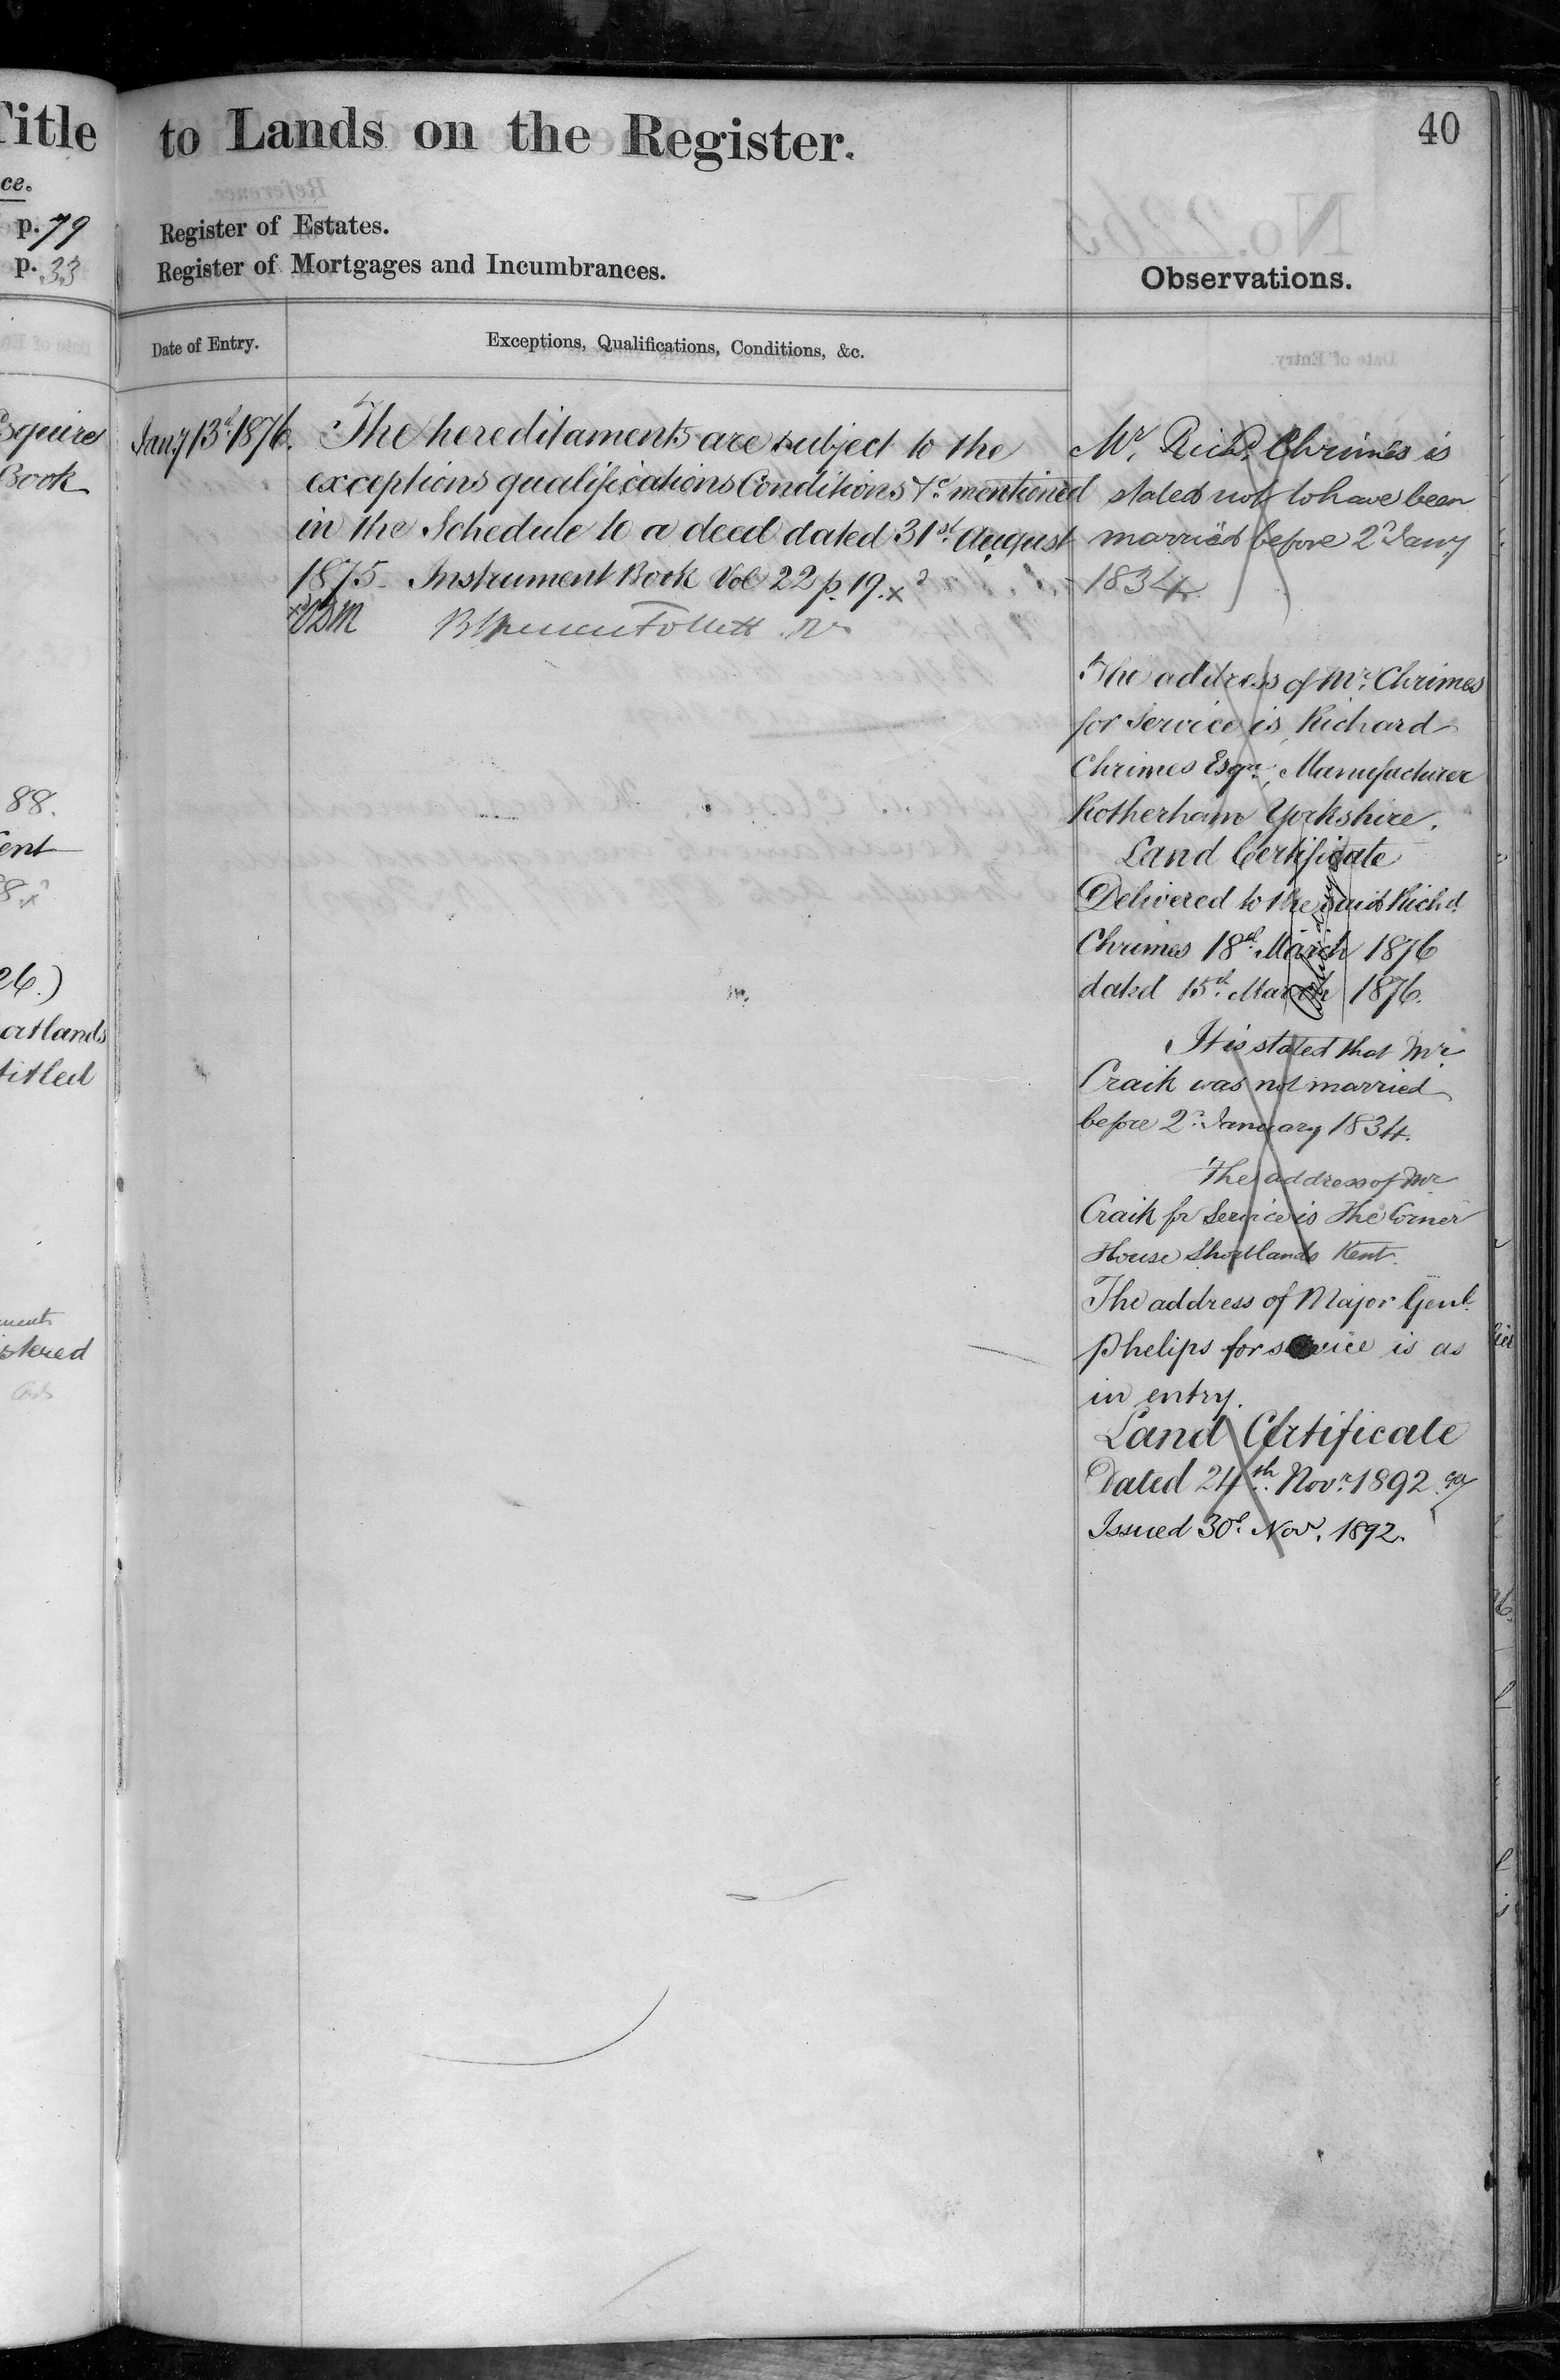 Title
ce.
p. 79
p. 33
Esquire
Book
88.
Kent
26.)
ortlands
titled
ments
istered
to Lands on the Register.
40
Register of Estates.
Register of Mortgages and Incumbrances.
Observations.
Date of Entry.
Exceptions, Qualifications, Conditions, &c.
Jany 13th 1876.
The hereditaments are subject to the
exceptions qualifications Conditions &c mentioned
in the Schedule to a deed dated 31st August
1875. Instrument Book Vol 22 p. 19. x
B Spencer Follett
Mr. Richd. Chrimes is
stated not to have been
married before 2d Jany
1834.
The address of Mr. Chrimes
for service is, Richard
Chrimes Esqre, Manufacturer
Rotherham Yorkshire.
Land Certificate
Delivered to the said Richd.
Chrimes 18th March 1876
dated 15th March 1876.
It is stated that Mr
Craik was not married
before 2d January 1834.
The address of Mr
Craik for Service is The Corner
House Shortlands Kent.
The address of Major Genl.
Phelips for service is as
in entry.
Land Certificate
Dated 24th Novr. 1892
Issued 30th Nov. 1892.